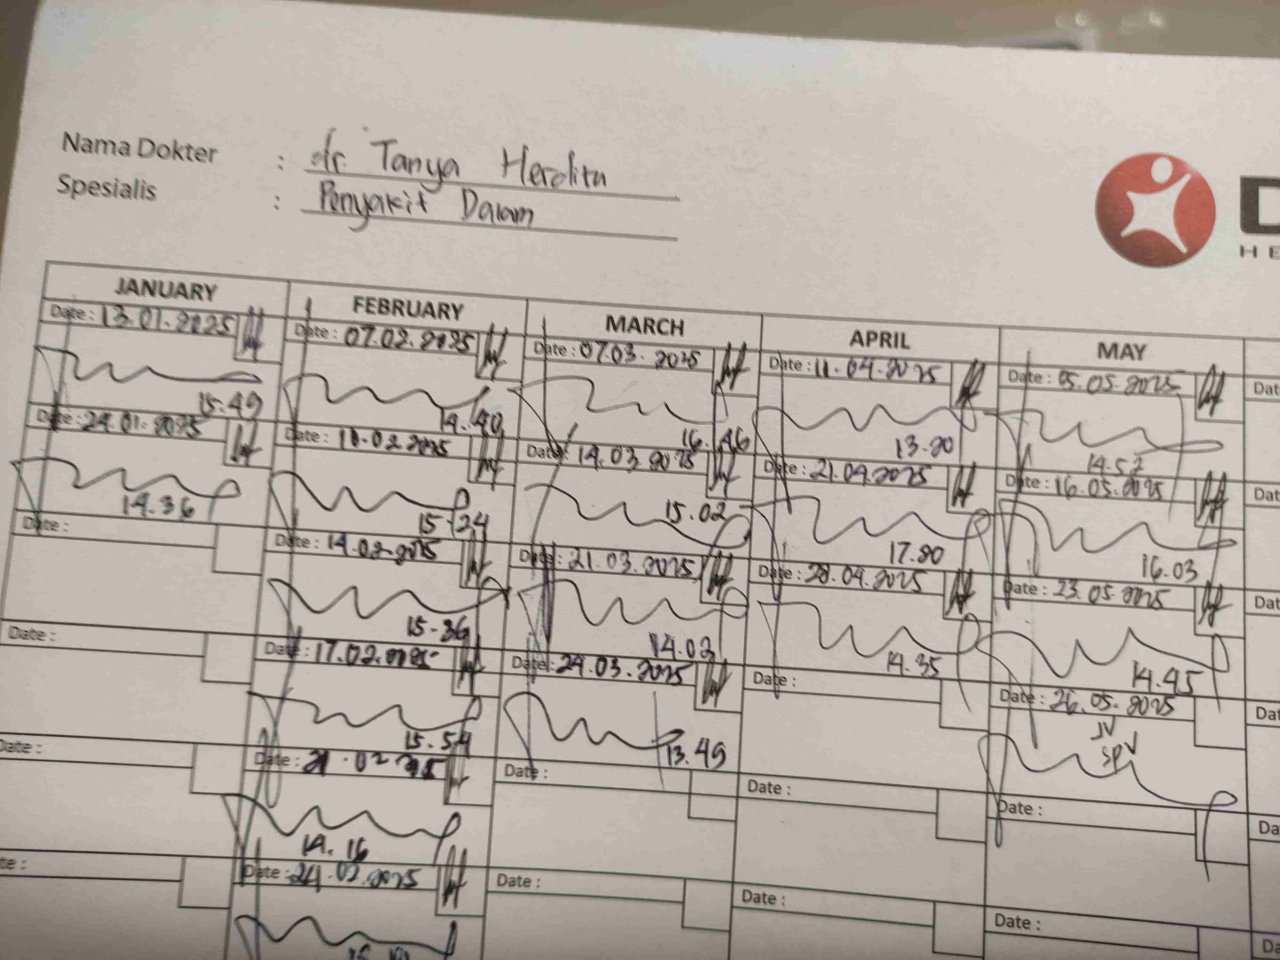 Nama Dokter : dr. Tanya Herdita
Spesialis : Penyakit Dalam
D
HE
JANUARY
Date : 13.01.2025
15.49
Date : 24.01.2025
14.36
Date :
Date :
Date :
te :
FEBRUARY
Date : 07.02.2025
14.40
Date : 10.02.2025
15-24
Date : 14.02.2025
15-36
Date : 17.02.2025
15.54
Date : 21.02.2025
14.16
Date : 24.02.2025
MARCH
Date : 07.03.2025
16.46
Date : 14.03.2025
15.02
Date : 21.03.2025
14.03
Date : 24.03.2025
13.49
Date :
Date :
APRIL
Date : 11.04.2025
13.20
Date : 21.04.2025
17.20
Date : 28.04.2025
14.35
Date :
Date :
Date :
MAY
Date : 05.05.2025
14.52
Date : 16.05.2025
16.03
Date : 23.05.2025
14.45
Date : 26.05.2025
JV
SPV
Date :
Date :
Dat
Dat
Dat
Dat
Da
Da